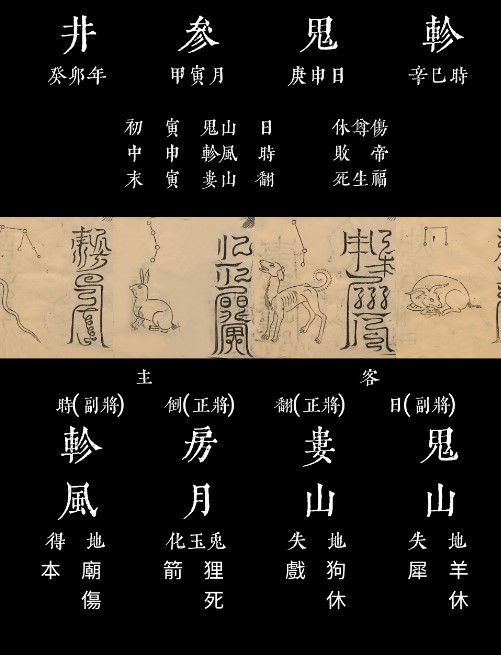 井 參 鬼 軫
癸卯年 甲寅月 庚申日 辛巳時
初 寅 鬼山 日 休尊傷
中 申 軫風 時 敗 帝
末 寅 婁山 翻 死生福
主 客
時(副將) 倒(正將) 翻(正將) 日(副將)
軫 房 婁 鬼
風 月 山 山
得 地 化玉兎 失 地 失 地
本 廟 箭 狸 戲 狗 犀 羊
傷 死 休 休